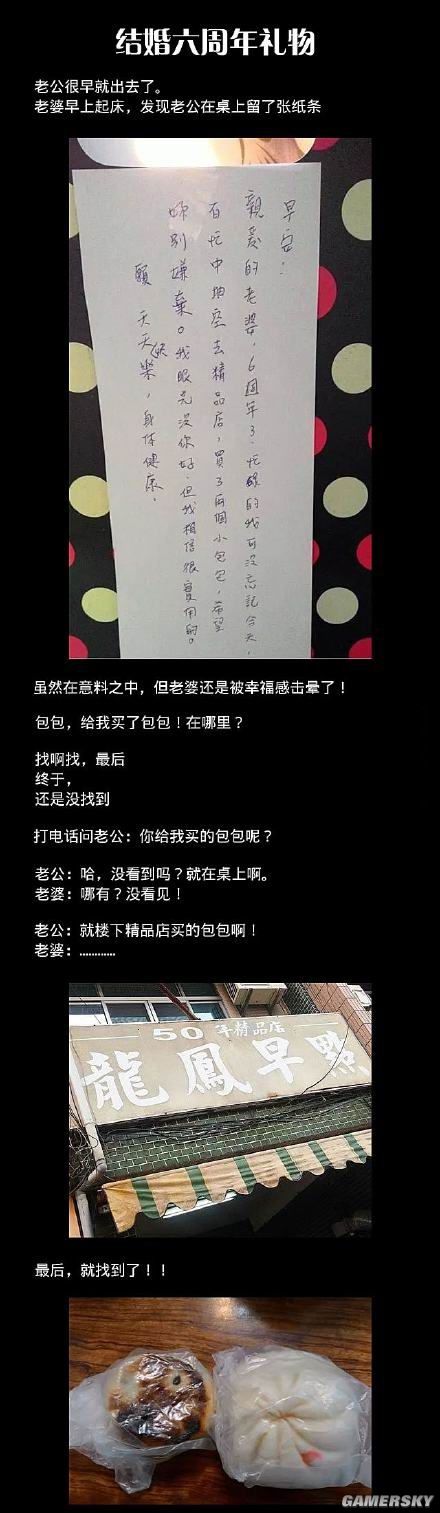 结婚六周年礼物
老公很早就出去了。
老婆早上起床，发现老公在桌上留了张纸条
早安：
親愛的老婆，6週年了，忙碌的我可沒忘記今天，
百忙中抽空去精品店，買了兩個小包包，希望
妳別嫌棄。我眼光沒你好，但我相信很實用的。
願 天天快樂，身体健康。
虽然在意料之中，但老婆还是被幸福感击晕了！
包包，给我买了包包！在哪里？
找啊找，最后
终于，
还是没找到
打电话问老公：你给我买的包包呢？
老公：哈，没看到吗？就在桌上啊。
老婆：哪有？没看见！
老公：就楼下精品店买的包包啊！
老婆：…………
50 年精品店
龍鳳早點
最后，就找到了！！
GAMERSKY